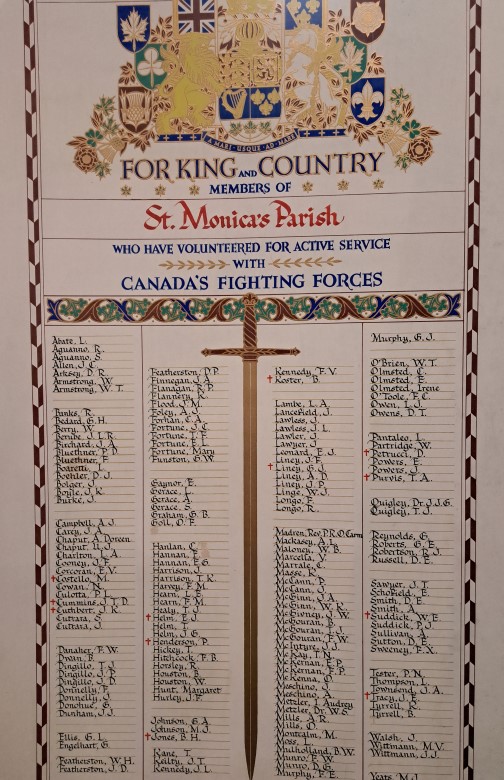 A MARI · USQUE · AD · MARE
FOR KING AND COUNTRY
MEMBERS OF
St. Monica's Parish
WHO HAVE VOLUNTEERED FOR ACTIVE SERVICE
WITH
CANADA'S FIGHTING FORCES
Abate, L.
Aguanno, R.
Aguanno, S.
Allen, J.C.
Arksey, D.R.
Armstrong, W.
Armstrong, W.T.
Banks, R.
Bedard, G.H.
Berry, W.
Berube, J.L.R.
Birchard, J.A.
Bluethner, F.D.
Bluethner, F.
Boaretti, L.
Boehler, D.J.
Bolger, J.
Boyle, J.K.
Burke, J.
Campbell, A.J.
Carey, J.A.
Chaput, A. Doreen
Chaput, U.J.
Charlton, L.A.
Cooney, J.F.
Corcoran, F.V.
† Costello, M.
Cowan, N.
Culotta, P.L.
† Cummins, J.T.D.
† Cuthbert, J.K.
Cutrara, S.
Cutrara, J.
Danaher, F.W.
Dwain, B.
Dingillo, T.J.
Dingillo, J.F.
Dingillo, J.D.
Donnelly, F.
Donnelly, J.
Donohue, G.
Dunham, J.J.
Ellis, G.L.
Engelhart, G.
Featherston, W.H.
Featherston, J.D.
Featherston, D.P.
Finnegan, J.A.
Flanagan, R.P.
Flannery, K.
Flood, J.M.
Foley, A.J.
Forhan, C.A.
Fortune, S.C.
Fortune, T.F.
Fortune, E.L.
Fortune, Mary
Funston, G.W.
Gaynor, E.
Gerace, L.
Gerace, A.
Gerace, S.
Graham, G.B.
Goll, O.F.
Hanlan, C.
Hannan, F.
Hannan, F.G.
Harrison, J.
Harrison, T.K.
Harvey, E.M.
Hearn, L.E.
Hearn, F.M.
Healy, T.J.
† Helm, E.J.
Helm, T.
Helm, J.G.
† Henderson, P.
Hickey, L.
Hitchcock, F.B.
Horsley, R.
Houston, B.
Houston, W.
Hunt, Margaret
Hurley, J.F.
Johnson, G.A.
Johnson, M.J.
† Jones, B.H.
Kane, T.
Keilty, J.T.
Kennedy, J.L.
Kennedy, F.V.
† Koster, B.
Lambe, L.A.
Lancefield, J.
Lawless, J.
Lawless, J.L.
Lawlor, J.
Lawyer, J.
Leonard, E.J.
Liney, J.F.
† Liney, G.J.
Liney, A.D.
Liney, J.D.
Linge, W.J.
Longo, F.
Longo, R.
Madren, Rev. P.R. O.Carm
Mackasey, A.J.
Maloney, W.B.
Marcella, Y.
Marrale, C.
Masse, K.
McCann, P.
McCann, J.
McGinn, J.A.
McGinn, W.K.
McGivney, J.W.
McGouran, S.
McGouran, J.
McGouran, F.W.
McIntyre, J.J.
McKay, T.N.
McKernan, E.P.
McKernan, F.P.
McKenna, O.
Meschino, P.
Meschino, A.
Metzler, J. Audrey
Metzler, Dr. W.S.
Mills, A.R.
Mills, O.
Montcalm, M.
Moss, J.
Mulholland, B.W.
Munro, F.W.
Munro, D.G.
Murphy, F.E.
Murphy, G.J.
O'Brien, W.T.
Olmsted, C.
Olmsted, E.
Olmsted, Irene
O'Toole, F.C.
Owen, L.J.
Owens, D.T.
Pantaleo, L.
Partridge, W.
† Petrucci, D.
Powers, E.
Powers, J.
† Purvis, T.A.
Quigley, Dr. J.J.G.
Quigley, T.J.
Reynolds, G.
Roberts, G.E.
Robertson, R.J.
Russell, D.E.
Sawyer, J.T.
Schofield, E.
Smith, D.E.
Smith, A.
† Suddick, W.E.
Suddick, P.J.
Sullivan, A.
Sutton, D.E.
Sweeney, F.X.
Tester, P.N.
Thompson, L.
Townsend, J.A.
† Tracy, J.F.
Tyrrell, R.
Tyrrell, B.
Walsh, J.
Wittmann, M.V.
Wittmann, J.J.
Yeats, M.J.